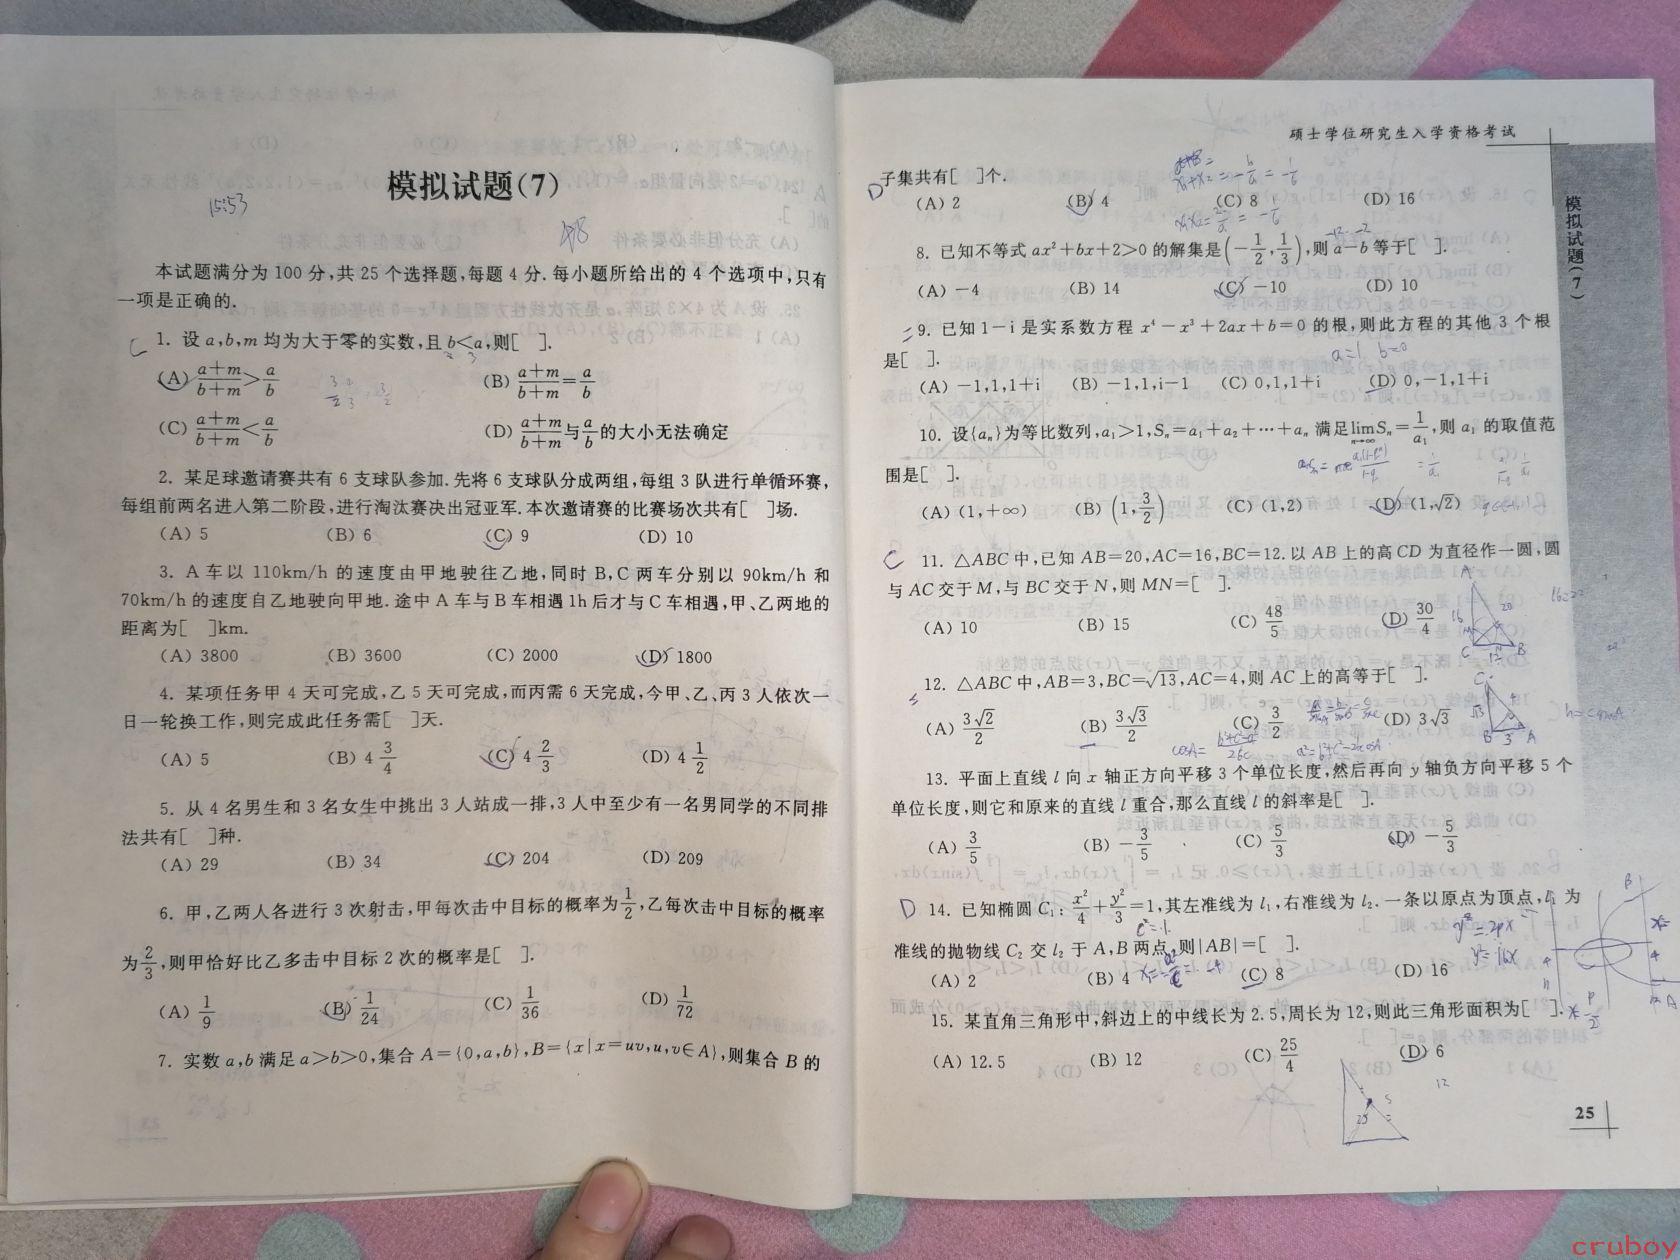 模拟试题(7)
15:53
本试题满分为 100 分,共 25 个选择题,每题 4 分.每小题所给出的 4 个选项中,只有
一项是正确的.
C 1. 设 a,b,m 均为大于零的实数,且 b<a,则[ ].
(A) (a+m)/(b+m)>a/b (B) (a+m)/(b+m)=a/b
(C) (a+m)/(b+m)<a/b (D) (a+m)/(b+m)与a/b的大小无法确定
2. 某足球邀请赛共有 6 支球队参加.先将 6 支球队分成两组,每组 3 队进行单循环赛,
每组前两名进入第二阶段,进行淘汰赛决出冠亚军.本次邀请赛的比赛场次共有[ ]场.
(A) 5 (B) 6 (C) 9 (D) 10
3. A 车以 110km/h 的速度由甲地驶往乙地,同时 B,C 两车分别以 90km/h 和
70km/h 的速度自乙地驶向甲地.途中 A 车与 B 车相遇 1h 后才与 C 车相遇,甲、乙两地的
距离为[ ]km.
(A) 3800 (B) 3600 (C) 2000 (D) 1800
4. 某项任务甲 4 天可完成,乙 5 天可完成,而丙需 6 天完成,今甲、乙、丙 3 人依次一
日一轮换工作,则完成此任务需[ ]天.
(A) 5 (B) 4 3/4 (C) 4 2/3 (D) 4 1/2
5. 从 4 名男生和 3 名女生中挑出 3 人站成一排,3 人中至少有一名男同学的不同排
法共有[ ]种.
(A) 29 (B) 34 (C) 204 (D) 209
6. 甲,乙两人各进行 3 次射击,甲每次击中目标的概率为1/2,乙每次击中目标的概率
为2/3,则甲恰好比乙多击中目标 2 次的概率是[ ].
(A) 1/9 (B) 1/24 (C) 1/36 (D) 1/72
7. 实数 a,b 满足 a>b>0,集合 A={0,a,b},B={x|x=uv,u,v∈A},则集合 B 的
硕士学位研究生入学资格考试
模拟试题(7)
D 子集共有[ ]个.
(A) 2 (B) 4 (C) 8 (D) 16
8. 已知不等式 ax²+bx+2>0 的解集是(-1/2,1/3),则 a-b 等于[ ].
(A) -4 (B) 14 (C) -10 (D) 10
9. 已知 1-i 是实系数方程 x⁴-x³+2ax+b=0 的根,则此方程的其他 3 个根
是[ ].
a=1 b=0
(A) -1,1,1+i (B) -1,1,i-1 (C) 0,1,1+i (D) 0,-1,1+i
10. 设{aₙ}为等比数列,a₁>1,Sₙ=a₁+a₂+…+aₙ 满足lim n→∞ Sₙ=1/a₁,则 a₁ 的取值范
围是[ ].
(A) (1,+∞) (B) (1,3/2) (C) (1,2) (D) (1,√2)
C 11. △ABC 中,已知 AB=20,AC=16,BC=12.以 AB 上的高 CD 为直径作一圆,圆
与 AC 交于 M,与 BC 交于 N,则 MN=[ ].
(A) 10 (B) 15 (C) 48/5 (D) 30/4
12. △ABC 中,AB=3,BC=√13,AC=4,则 AC 上的高等于[ ].
(A) 3√2/2 (B) 3√3/2 (C) 3/2 (D) 3√3
13. 平面上直线 l 向 x 轴正方向平移 3 个单位长度,然后再向 y 轴负方向平移 5 个
单位长度,则它和原来的直线 l 重合,那么直线 l 的斜率是[ ].
(A) 3/5 (B) -3/5 (C) 5/3 (D) -5/3
D 14. 已知椭圆 C₁: x²/4+y²/3=1,其左准线为 l₁,右准线为 l₂.一条以原点为顶点,l₁ 为
准线的抛物线 C₂ 交 l₂ 于 A,B 两点,则|AB|=[ ].
y²=2px
y²=16x
(A) 2 (B) 4 (C) 8 (D) 16
15. 某直角三角形中,斜边上的中线长为 2.5,周长为 12,则此三角形面积为[ ].
(A) 12.5 (B) 12 (C) 25/4 (D) 6
12
25
cruboy